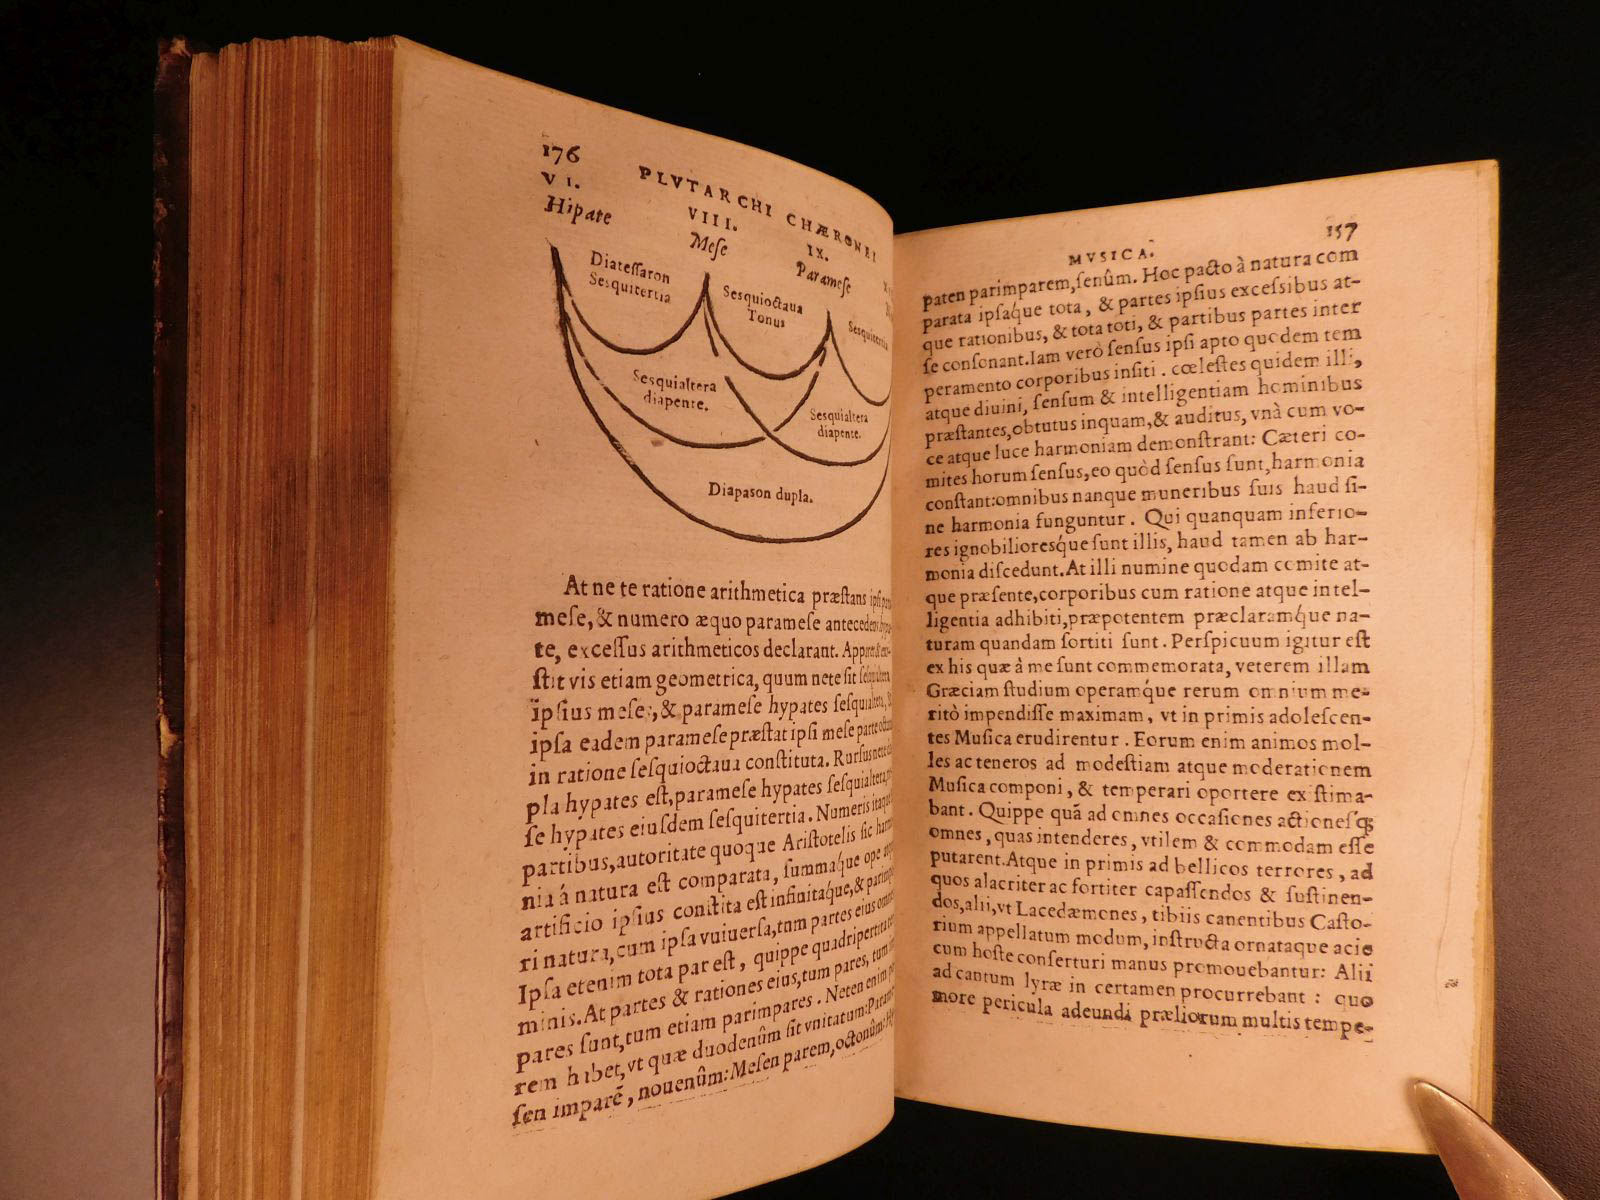 176
PLVTARCHI CHÆRONEI
VI.
VIII.
IX.
Hipate
Mese
Paramese
Diatessaron
Sesquitertia
Sesquioctaua
Tonus
Sesquitertia
Sesquialtera
diapente.
Sesquialtera
diapente.
Diapason dupla.
At ne te ratione arithmetica præstans ipsi
mese, & numero æquo paramese antecedens
te, excessus arithmeticos declarant.
stit vis etiam geometrica, quum nete sit
ipsius mese, & paramese hypates sesquialtera, &
ipsa eadem paramese præstat ipsi mese parte
in ratione sesquioctaua constituta. Rursus nete
pla hypates est, paramese hypates sesquialtera,
se hypates eiusdem sesquitertia. Numeris itaque
partibus, autoritate quoque Aristotelis sic
nia á natura est comparata, summaque ope
artificio ipsius constita est infinitáque, &
ri natura, cum ipsa vuiuersa, tum partes eius
Ipsa etenim tota par est, quippe quadripertita
minis. At partes & rationes eius, tum pares, tum
pares sunt, tum etiam parimpares. Neten enim
rem habet, vt quæ duodenûm sit vnitatum:
sen imparē, nouenûm: Mesen parem, octonûm:
157
MVSICA.
paten parimparem, senûm. Hoc pacto à natura com
parata ipsaque tota, & partes ipsius excessibus at-
que rationibus, & tota toti, & partibus partes inter
se consonant. Iam verò sensus ipsi apto quodem tem
peramento corporibus insiti. cœlestes quidem illi,
atque diuini, sensum & intelligentiam hominibus
præstantes, obtutus inquam, & auditus, vnà cum vo-
ce atque luce harmoniam demonstrant: Cæteri co-
mites horum sensus, eo quòd sensus sunt, harmonia
constant: omnibus nanque muneribus suis haud si-
ne harmonia funguntur. Qui quanquam inferio-
res ignobilioresque sunt illis, haud tamen ab har-
monia discedunt. At illi numine quodam comite at-
que præsente, corporibus cum ratione atque intel-
ligentia adhibiti, præpotentem præclaramque na-
turam quandam sortiti sunt. Perspicuum igitur est
ex his quæ â me sunt commemorata, veterem illam
Græciam studium operamque rerum omnium me-
ritò impendisse maximam, vt in primis adolescen-
tes Musica erudirentur. Eorum enim animos mol-
les ac teneros ad modestiam atque moderationem
Musica componi, & temperari oportere existima-
bant. Quippe quā ad omnes occasiones actionesq;
omnes, quas intenderes, vtilem & commodam esse
putarent. Atque in primis ad bellicos terrores, ad
quos alacriter ac fortiter capassendos & sustinen-
dos, alii, vt Lacedæmones, tibiis canentibus Casto-
rium appellatum modum, instructa ornataque acie
cum hoste conserturi manus promouebantur: Alii
ad cantum lyræ in certamen procurrebant: quo
more pericula adeundi præliorum multis tempe-